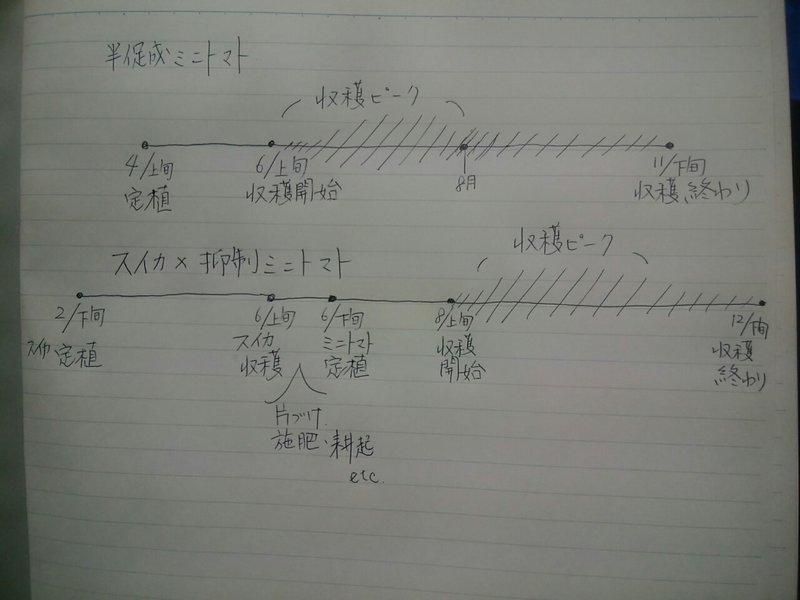 半促成ミニトマト
収穫ピーク
4/上旬
定植
6/上旬
収穫開始
8月
11/下旬
収穫終わり
スイカ×抑制ミニトマト
収穫ピーク
2/下旬
スイカ定植
6/上旬
スイカ
収穫
6/下旬
ミニトマト
定植
8/上旬
収穫
開始
12/下旬
収穫
終わり
片づけ
施肥・耕起
etc.